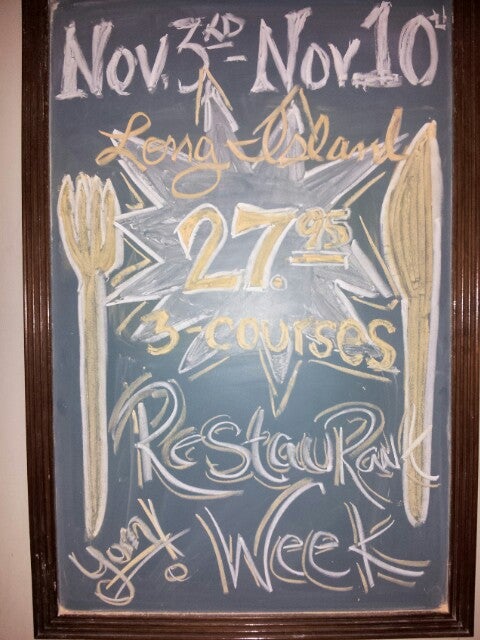 Nov. 3RD - Nov. 10th
Long Island
27.95
3-courses
Restaurant
Week
yum!